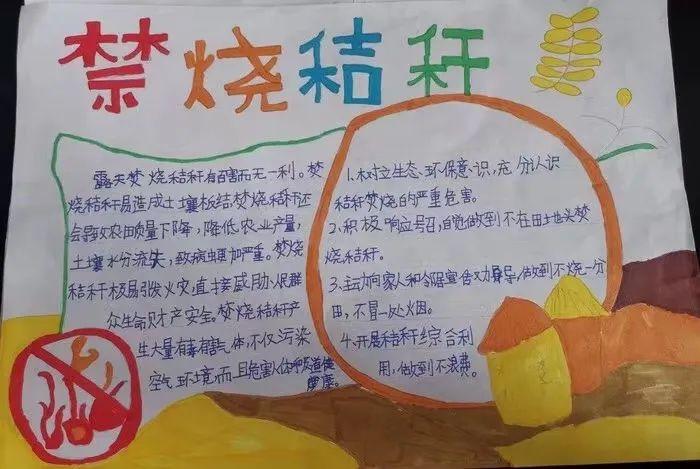 禁烧秸秆
露天焚烧秸秆有百害而无一利。焚
烧秸秆易造成土壤板结焚烧秸秆还
会导致农田质量下降，降低农业产量，
土壤水分流失，致病虫更加严重。焚烧
秸秆极易引发火灾，直接威胁人民群
众生命财产安全。焚烧秸秆产
生大量有毒有害气体，不仅污染
空气环境，而且危害人体呼吸道健
康。
1、树立生态、环保意识，充分认识
秸秆焚烧的严重危害。
2、积极响应号召，自觉做到不在田地头焚
烧秸秆。
3、主动向家人和邻居宣传劝导，做到不烧一分
田，不冒一处烟。
4、开展秸秆综合利
用，做到不浪费。